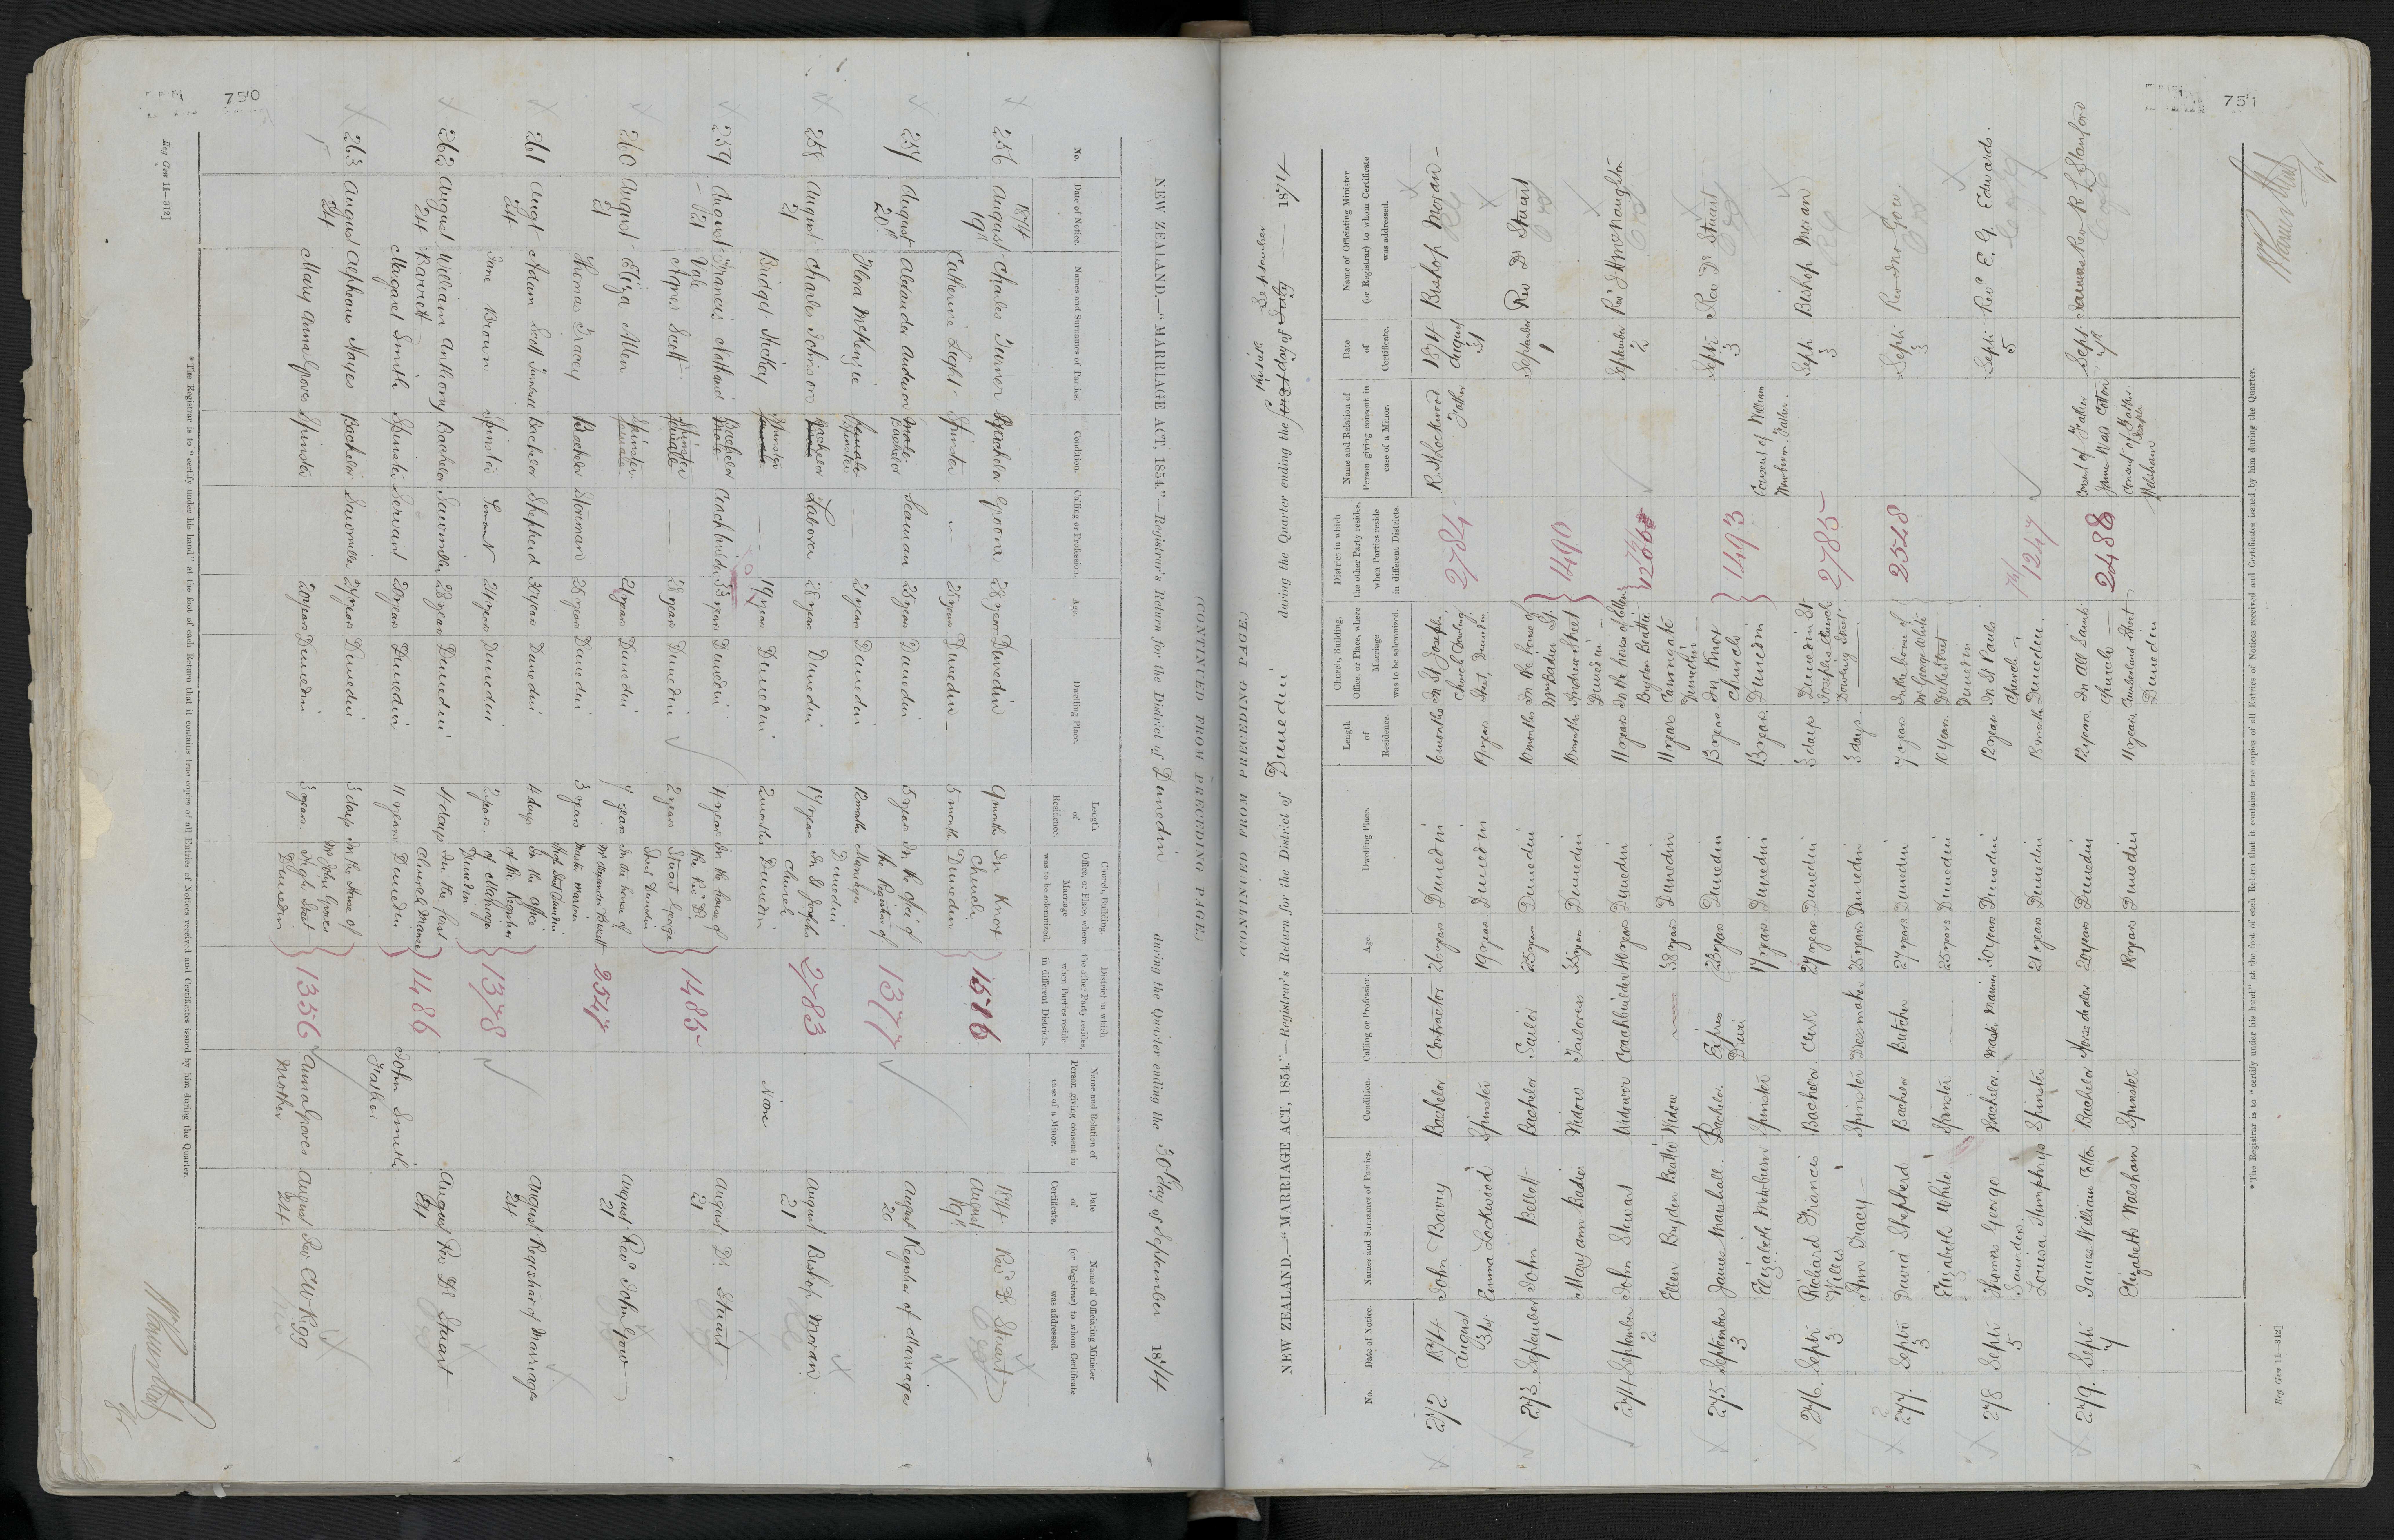 750
(CONTINUED FROM PRECEDING PAGE.)
NEW ZEALAND.—"MARRIAGE ACT, 1854."—Registrar's Return for the District of Dunedin during the Quarter ending the 30th day of September 1874
No. Date of Notice. Names and Surnames of Parties. Condition. Calling or Profession. Age. Dwelling Place. Length of Residence. Church, Building, Office, or Place, where Marriage was to be solemnized. District in which the other Party resides, when Parties reside in different Districts. Name and Relation of Person giving consent in case of a Minor. Date of Certificate. Name of Officiating Minister (or Registrar) to whom Certificate was addressed.
256 1874 August 19th Charles Bachelor 28 years Dunedin 9 months In Knox Church Dunedin 1874 August 19th Revd Dr Stuart
Catherine Light Spinster 25 years Dunedin 5 months
257 August 20th Alexander Anderson Male Bachelor Seaman 25 years Dunedin 5 years In the office of the Registrar of Marriages Dunedin 1377 August 20 Registrar of Marriages
Flora McKenzie Female Spinster 21 years Dunedin 12 months
258 August 21 Charles Johnson Bachelor Laborer 28 years Dunedin 14 years In St Josephs Church Dunedin 2783 None August 21 Bishop Moran
Bridget Hickey Spinster 19 years Dunedin 2 months
259 August 21 Francis Nathaniel Vale Bachelor Male Coachbuilder 33 years Dunedin 4 years In the house of the Revd Dr Stuart George Street Dunedin 1485 August 21 Dr Stuart
Agnes Scott Spinster Female 28 years Dunedin 2 years
260 August 21 Eliza Allen Spinster Female 21 years Dunedin 7 years In the house of Mr Alexander 2547 August 21 Revd John Gow
Thomas Tracey Bachelor Storeman 25 years Dunedin 3 years
261 Augt 24 Adam Scott Bachelor Shepherd 30 years Dunedin 4 days In the office of the Registrar of Marriages Dunedin 1378 August 24 Registrar of Marriages
Jane Brown Spinster Servant 21 years Dunedin 2 years
262 August 24 William Anthony Barrett Bachelor Sawmiller 28 years Dunedin 4 days In the first Church Manse Dunedin 1486 John Smith Father August 24 Rev Dr Stuart
Margaret Smith Spinster Servant 20 years Dunedin 11 years
263 August 24 Alpheus Hayes Bachelor Sawmiller 27 years Dunedin 3 days In the House of Mr John Groves High Street Dunedin 1356 Anna Groves Mother August 24 Rev C W Rigg
Mary Anna Groves Spinster 20 years Dunedin 3 years
*The Registrar is to "certify under his hand" at the foot of each Return that it contains true copies of all Entries of Notices received and Certificates issued by him during the Quarter.
Reg Gen 11—312]
751
(CONTINUED FROM PRECEDING PAGE.)
NEW ZEALAND.—"MARRIAGE ACT, 1854."—Registrar's Return for the District of Dunedin during the Quarter ending the first day of July thirtieth September 1874
No. Date of Notice. Names and Surnames of Parties. Condition. Calling or Profession. Age. Dwelling Place. Length of Residence. Church, Building, Office, or Place, where Marriage was to be solemnized. District in which the other Party resides, when Parties reside in different Districts. Name and Relation of Person giving consent in case of a Minor. Date of Certificate. Name of Officiating Minister (or Registrar) to whom Certificate was addressed.
272 1874 August 31st John Barry Bachelor Contractor 26 years Dunedin 6 months In St Josephs Church Dowling Street, Dunedin 2784 R N Lockwood Father 1874 August 31 Bishop Moran
Emma Lockwood Spinster 19 years Dunedin 19 years
273 September 1 John Bellett Bachelor Sailor 25 years Dunedin 10 months In the house of Mrs Bader St Andrew Street Dunedin 1490 September 1 Rev Dr Stuart
Mary Ann Bader Widow Tailoress 35 years Dunedin 10 months
274 September 2 John Stewart Widower Coachbuilder 40 years Dunedin 11 years In the house of Ellen Bryden Beattie Canongate Dunedin September 2 Revd
Ellen Bryden Beattie Widow 38 years Dunedin 11 years
275 September 3 James Marshall Bachelor Express Driver 23 years Dunedin 13 years In Knox Church Dunedin 1493 Consent of William Newburn, Father. Septr 3 Rev Dr Stuart
Elizabeth Newburn Spinster 17 years Dunedin 13 years
276 Septr 3 Richard Francis Willis Bachelor Clerk 27 years Dunedin 3 days Dunedin St Josephs Church Dowling Street 2785 Septr 3 Bishop Moran
Ann Tracy Spinster Dressmaker 25 years Dunedin 3 days
277 Septr 3 David Shepherd Bachelor Butcher 27 years Dunedin 7 years In the house of Mr George White Duke Street Dunedin 2548 Septr 3 Rev Jno Gow
Elizabeth White Spinster 25 years Dunedin 10 years
278 Septr 5 Thomas George Saunders Bachelor Master Mariner 30 years Dunedin 12 years In St Pauls Church Dunedin 1247 Septr 5 Revd E. G. Edwards.
Louisa Humphrys Spinster 21 years Dunedin 18 months
279 Septr 7 James William Cotton Bachelor Horse dealer 20 years Dunedin 12 years In All Saints Church Cumberland Street Dunedin 2488 Consent of Father James Ward Cotton Consent of Father Joseph Walsham Septr 7th Rev R L Stanford
Elizabeth Walsham Spinster 18 years Dunedin 11 years
*The Registrar is to "certify under his hand" at the foot of each Return that it contains true copies of all Entries of Notices received and Certificates issued by him during the Quarter.
Reg Gen 11—312]